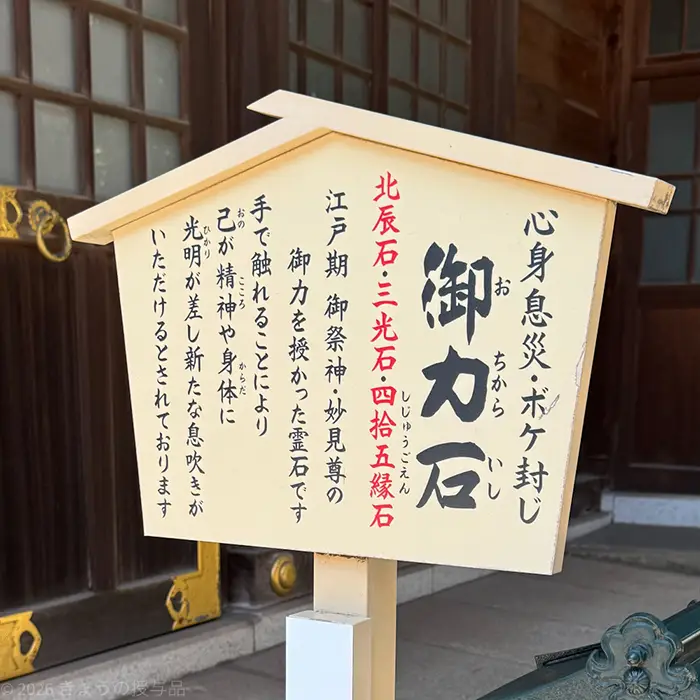 心身息災・ボケ封じ
御力石
お ちから いし
北辰石・三光石・四拾五縁石
しじゅうごえん
江戸期 御祭神・妙見尊の
御力を授かった霊石です
手で触れることにより
己が精神や身体に
おの こころ からだ
光明が差し新たな息吹きが
ひかり
いただけるとされております
©2026 きょうの授与品